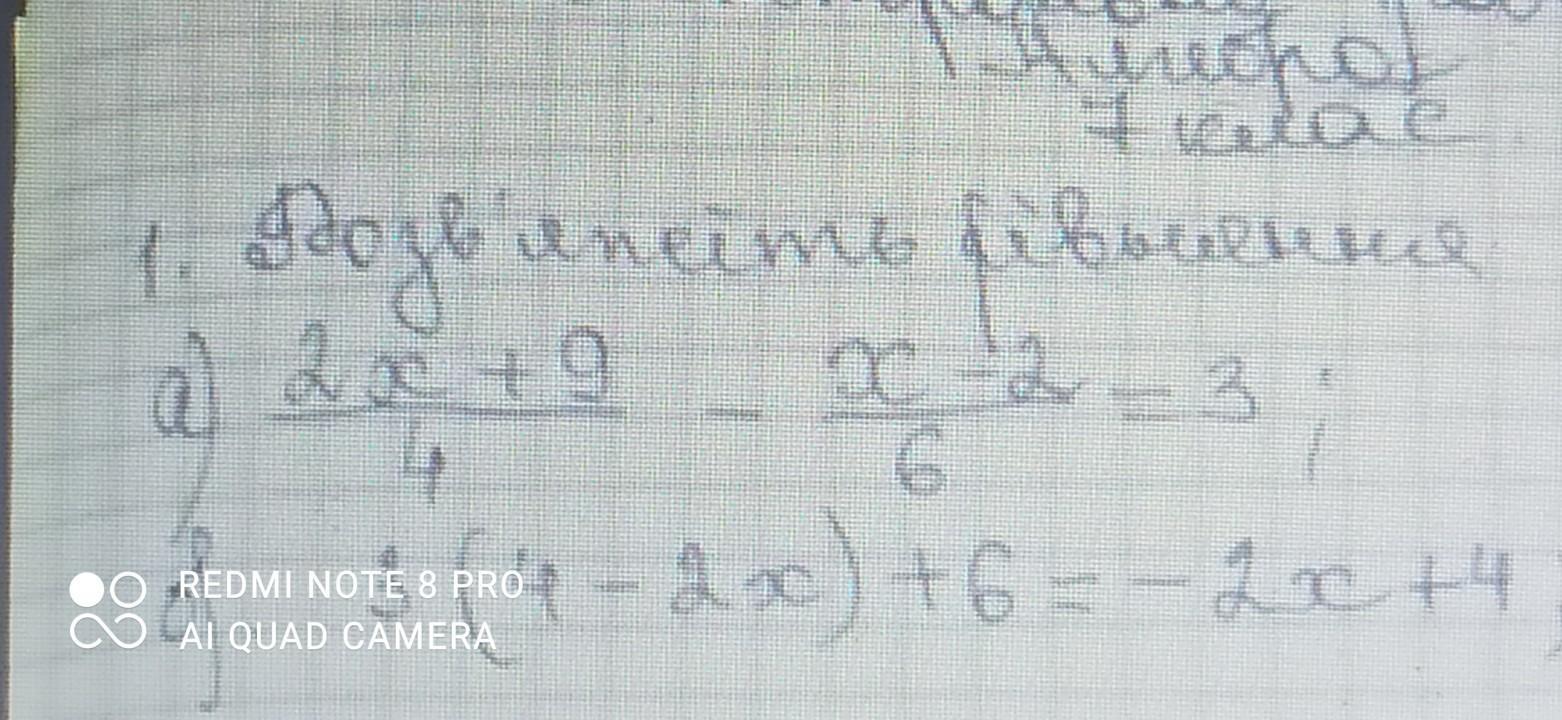 Алгебра
7 клас
1. Розв'яжіть рівняння
а) \frac{2x+9}{4} - \frac{x-2}{6} = 3;
(4-2x)+6=-2x+4
REDMI NOTE 8 PRO
AI QUAD CAMERA